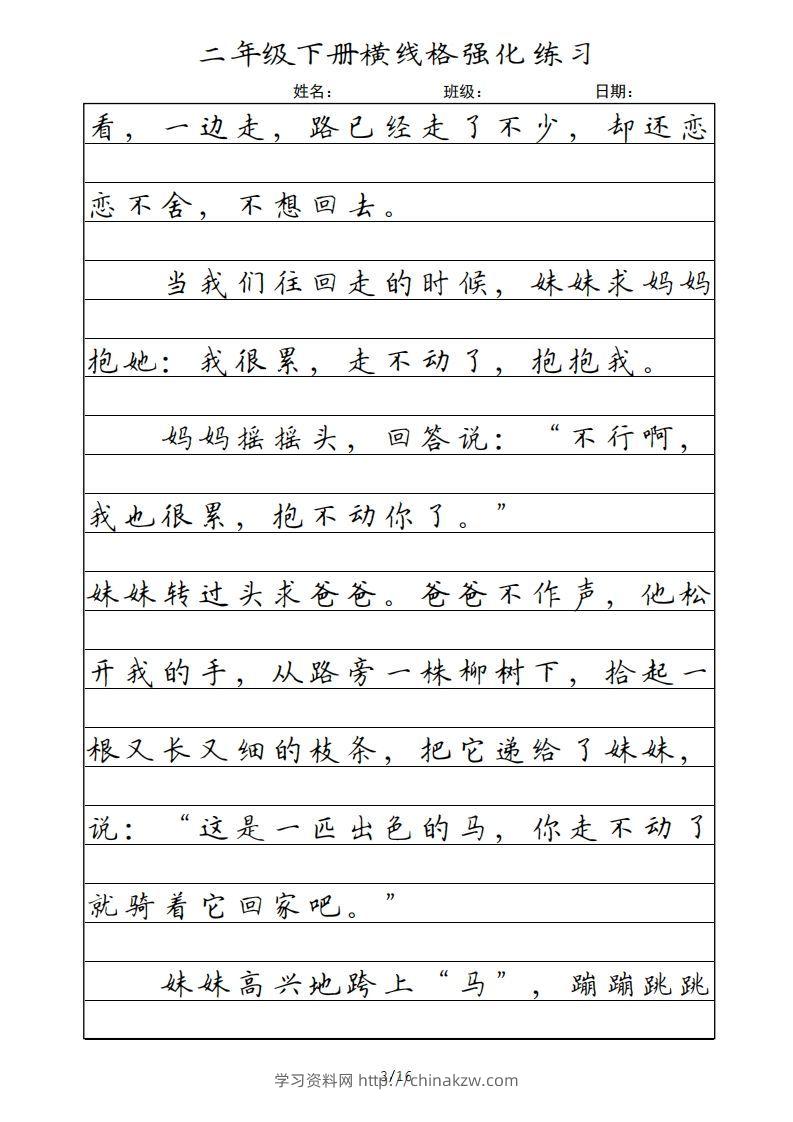 二年级下册横线格强化练习
姓名： 班级： 日期：
看，一边走，路已经走了不少，却还恋
恋不舍，不想回去。
当我们往回走的时候，妹妹求妈妈
抱她：我很累，走不动了，抱抱我。
妈妈摇摇头，回答说：“不行啊，
我也很累，抱不动你了。”
妹妹转过头求爸爸。爸爸不作声，他松
开我的手，从路旁一株柳树下，拾起一
根又长又细的枝条，把它递给了妹妹，
说：“这是一匹出色的马，你走不动了
就骑着它回家吧。”
妹妹高兴地跨上“马”，蹦蹦跳跳
3/16
学习资料网 http://chinakzw.com